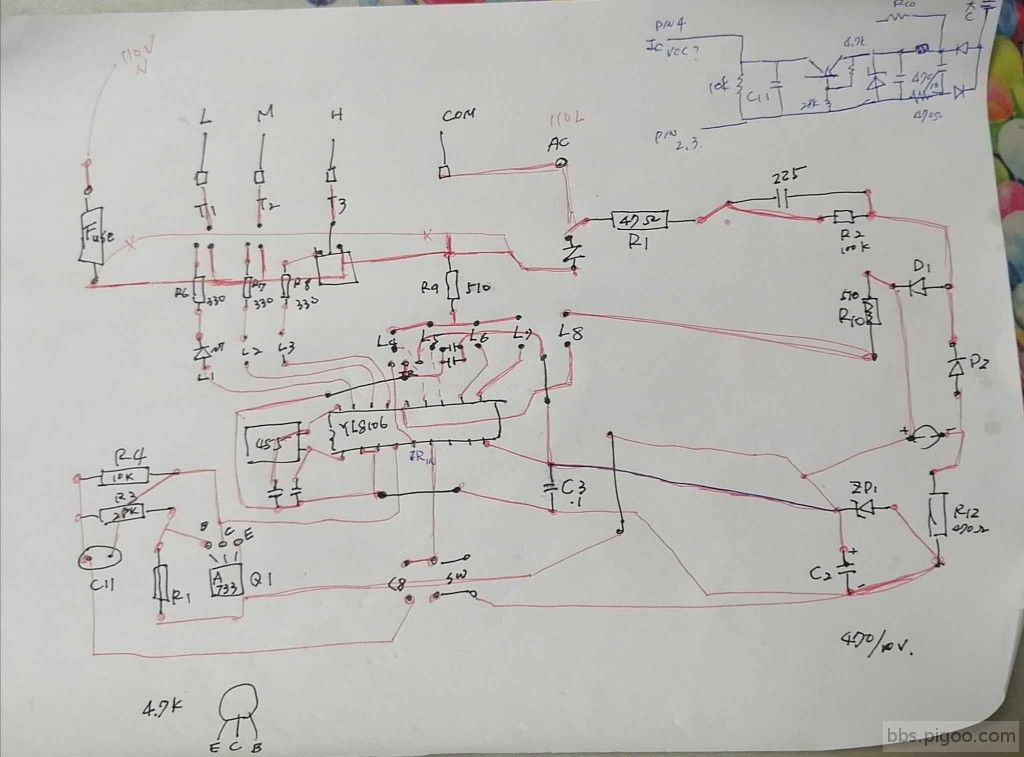 Rco
PIN 4
IC VCC?
4.7K
10K
C11
28K
470
470Ω
PIN
2.3.
110V
N
L
M
H
COM
110L
AC
T1
T2
T3
Fuse
225
47Ω
R1
R2
100K
R6
330
R7
330
R8
330
R9
510
D1
510
R10
L4
L5
L6
L7
L8
L1
L2
L3
D2
455
YL8106
IR IN
R4
10K
R3
28K
C3
.1
ZD1
R12
470Ω
B
C
E
C11
R1
A
733
Q1
C8
SW
C2
+
-
470/10V.
4.7K
E C B
bbs.pigoo.com